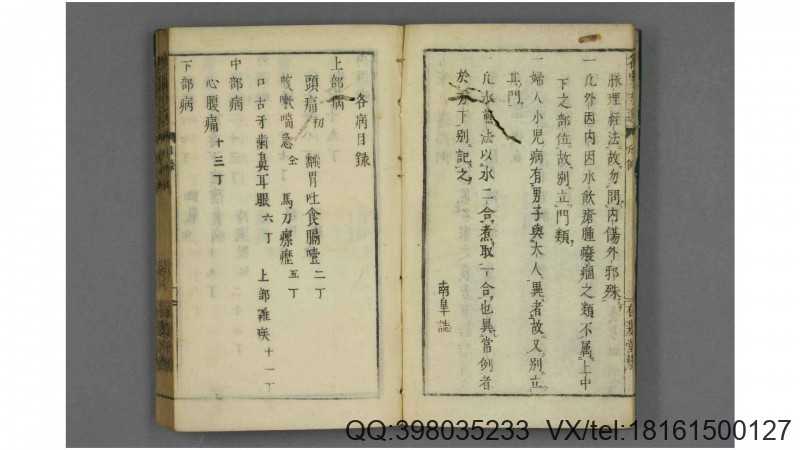 脉理経法故勿問内傷外邪殊
一凡外因内因水飲瘡腫癥瘤之類不属上中
下之部位故別立門類
一婦人小児病有男子與大人異者故又別立
其門
一凡水煮法以水二合煮取一合也異常例者
於方下別記之
南皐誌
各病目録
上部病
頭痛 初 翻胃吐食膈噎 二丁
咳嗽喘急 仝 馬刀瘰癧 五丁
口舌牙歯鼻耳眼 六丁 上部雜咲 十一丁
中部病
心腹痛 十三丁
下部病
QQ:398035233 VX/tel:18161500127